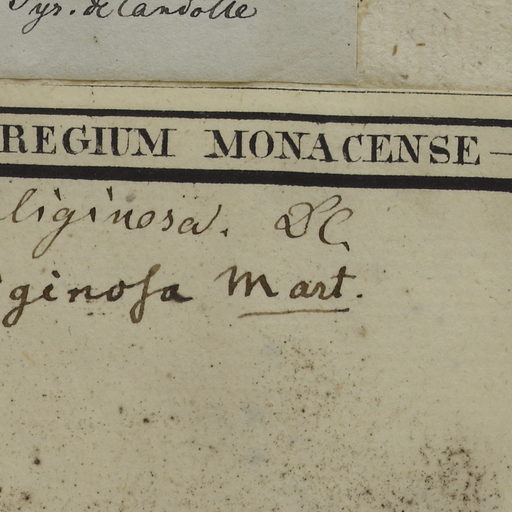 Pyr. de Candolle
REGIUM MONACENSE —
liginosa. DC.
ginosa Mart.